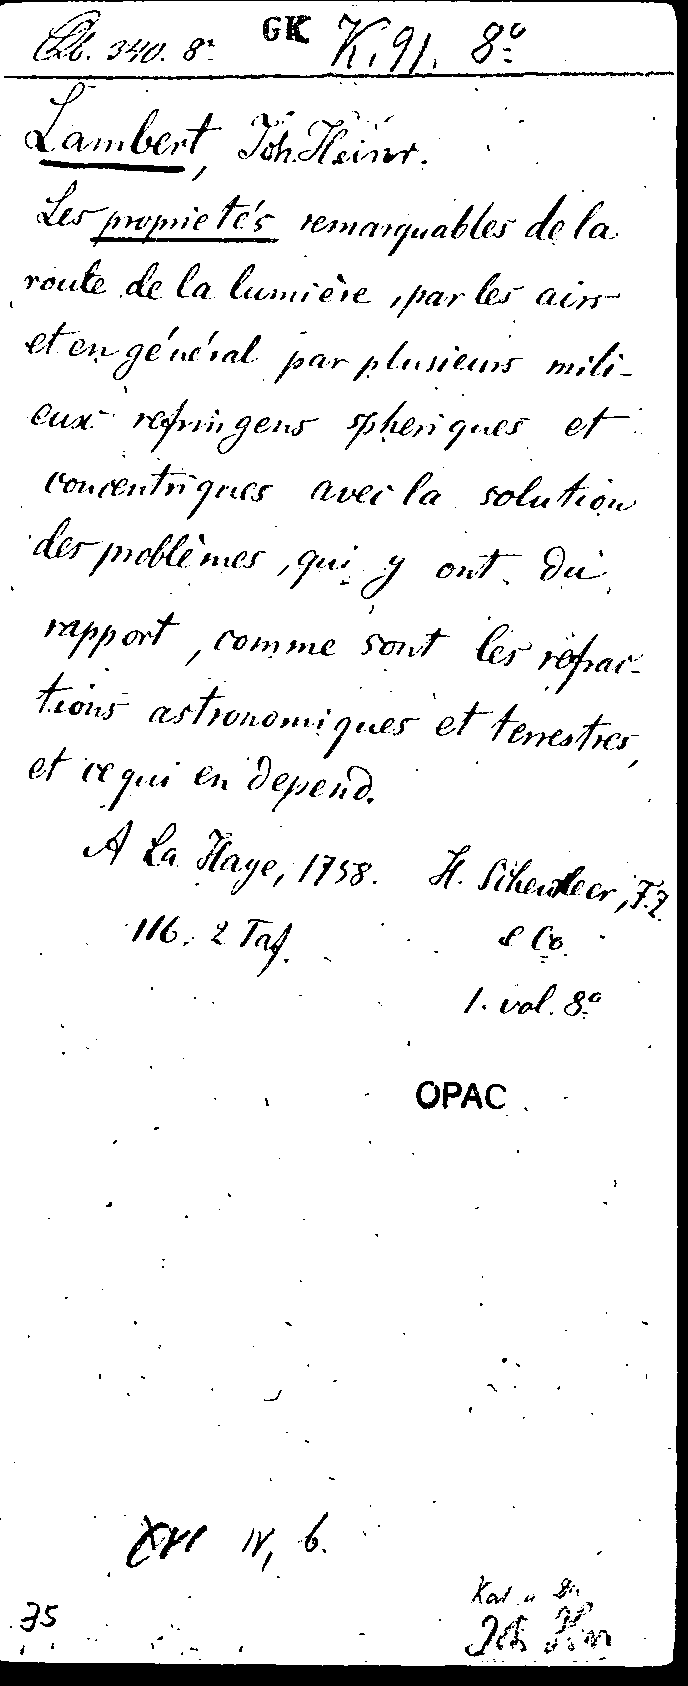 340. 8° GK K. 91. 8º
Lambert, Joh. Heinr.
Les proprietés remarquables de la
route de la lumière, par les airs
et en général par plusieurs mili-
eux refringens spheriques et
concentriques avec la solution
des problèmes, qui y ont du
rapport, comme sont les refrac-
tions astronomiques et terrestres,
et ce qui en depend.
A La Haye, 1758. H. Scheurleer, F. Z.
116. 2 Taf. & Co.
1. vol. 8º
OPAC
XVI IV, 6.
35 Joh